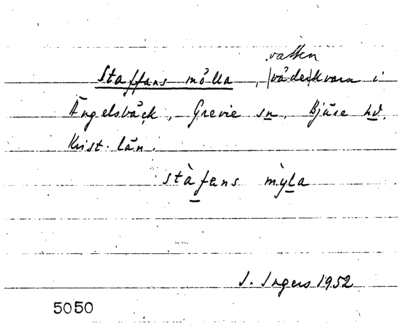 vatten
Staffans mölla, (väder)kvarn i
Ängelsbäck, Grevie sn, Bjäre hd,
Krist. län.
stàfans mỳla
I. Ingers 1952
5050